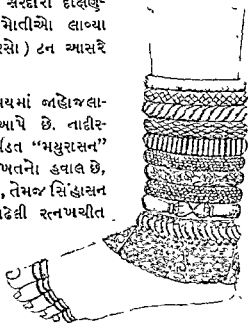 સરદારો દક્ષિણ-
મોતીઓ લાવ્યા
રસો ) ટન આસરે
યમાં જાહોજલા-
આપે છે. નાદીર-
ડિત “મયુરાસન”
ખતનો હવાલ છે,
, તેમજ સિંહાસન
ઢેલી રત્નખચીત